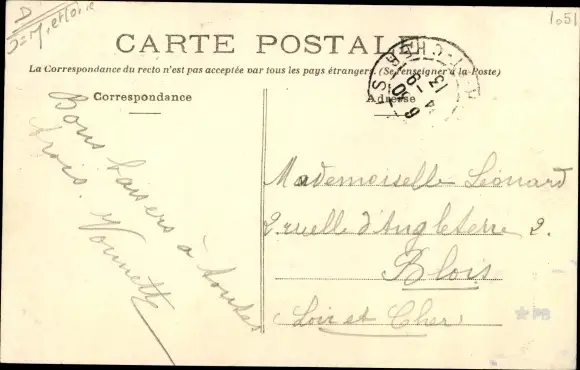 D
1051
CARTE POSTALE
La Correspondance du recto n'est pas acceptée par tous les pays étrangers. (Se renseigner à la Poste)
Correspondance
Adresse
Bons baisers à toutes
trois. Yvonnette
Mademoiselle Léonard
2 ruelle d'Angleterre 2.
Blois
Loir et Cher
PB